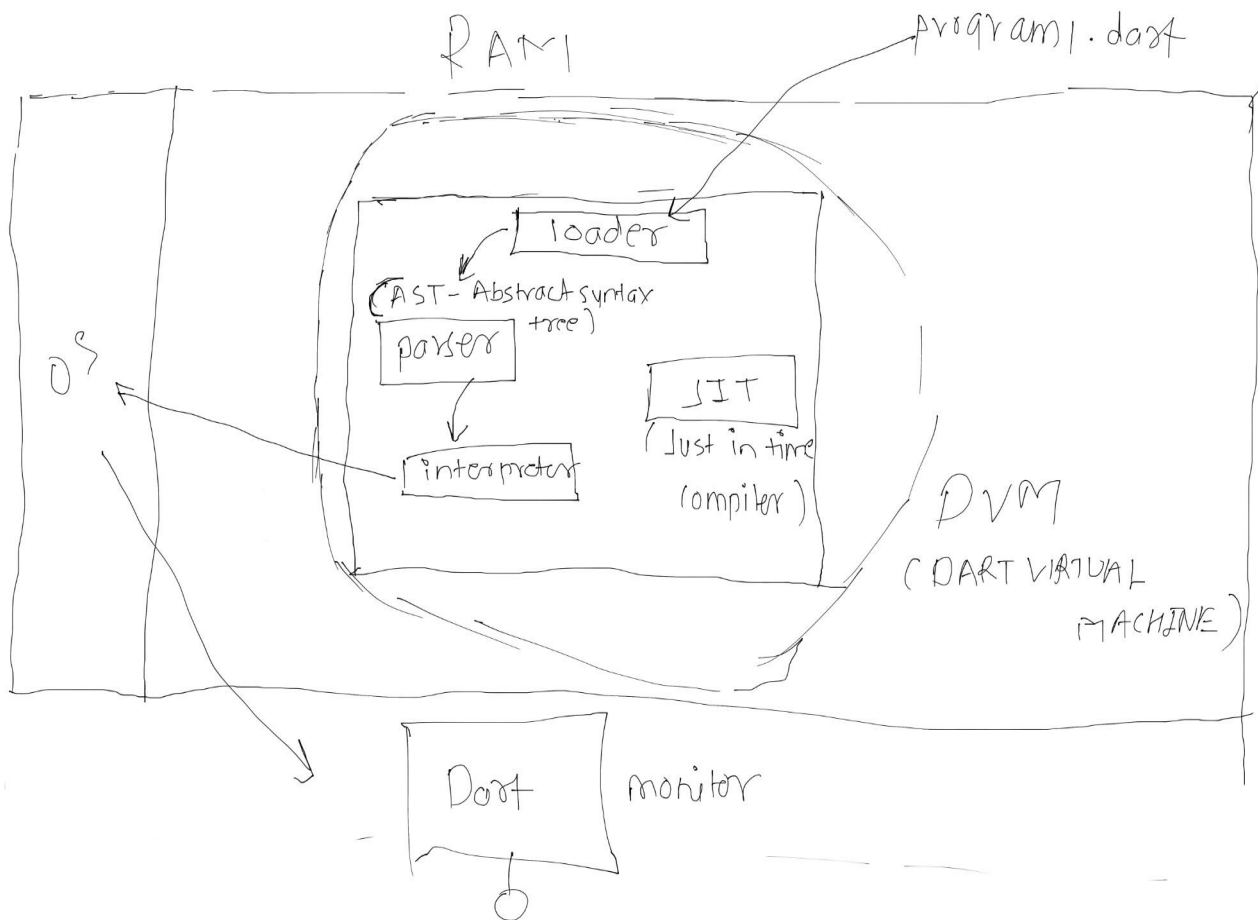 RAM
program1.dart
loader
(AST - Abstract syntax
tree)
parser
JIT
(Just in time
compiler)
interpreter
OS
DVM
(DART VIRTUAL
MACHINE)
Dart
monitor